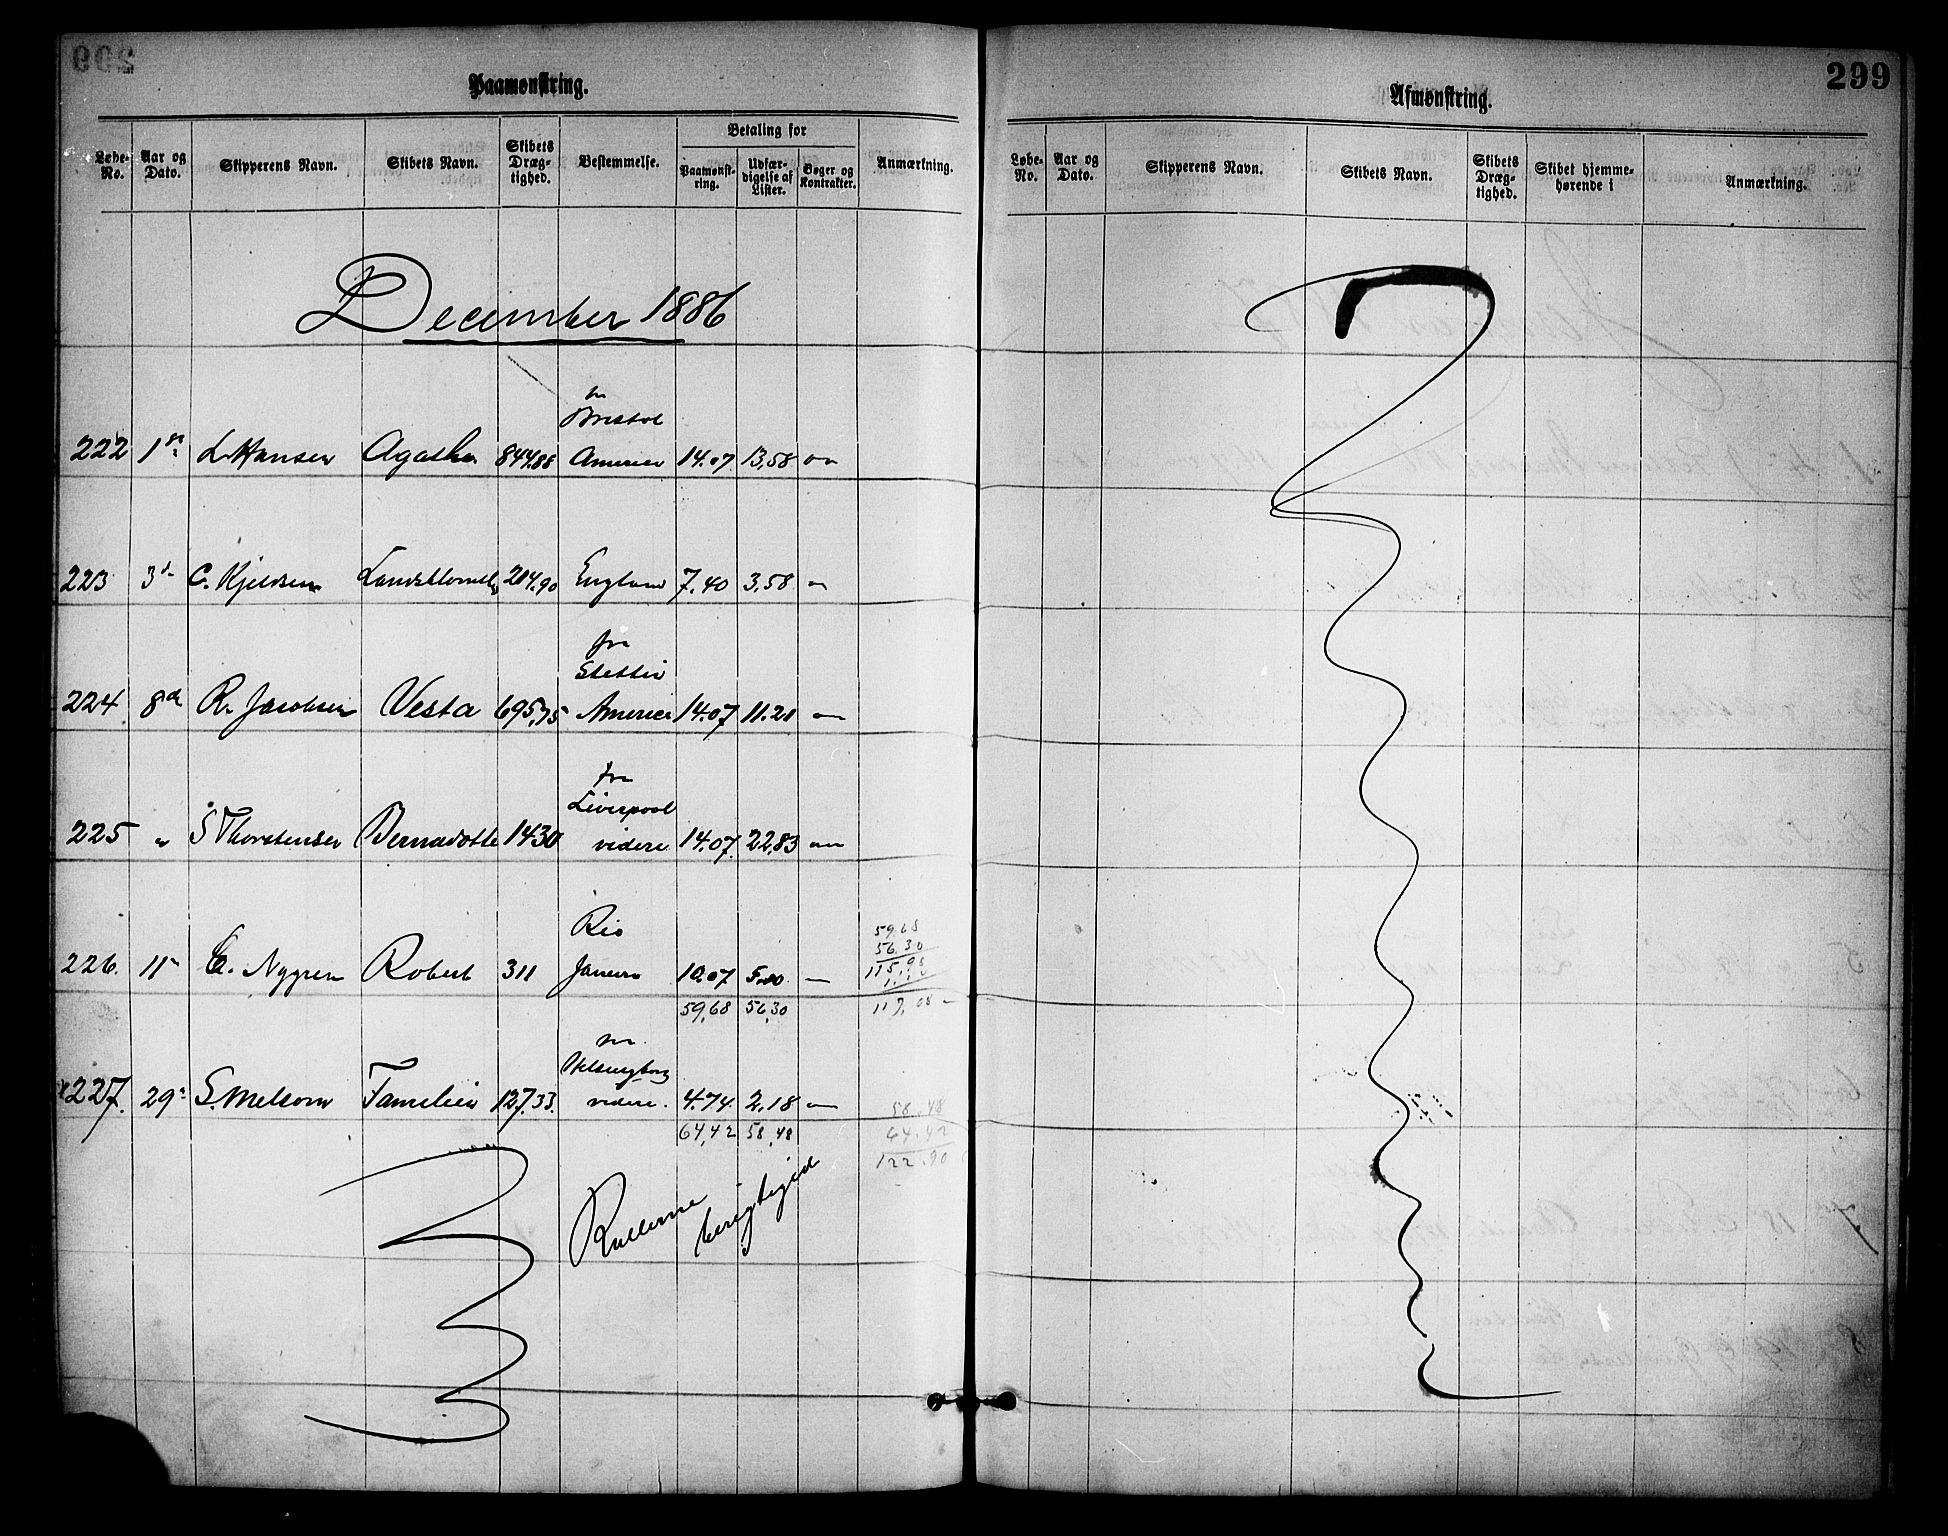 299
Paamønstring.
Løbe-No. Aar og Dato. Skipperens Navn. Skibets Navn. Skibets Dræg-tighed. Bestemmelse. Betaling for Paamønst-ring. Udfær-digelse af Lister. Bøger og Kontrakter. Anmærkning.
December 1886
Bristol
222 1ste L. Hansen Agatha 844.88 America 14.07 13,58
223 3d C. Kjeldsen Landsblomsten 204.90 England 7.40 3,58
fra
Stettin
224 8de R. Jacobsen Vesta 695,75 America 14.07 11.21
fra
Liverpool
225 " S Thorstensen Bernadotte 1430 videre 14.07 22,83
Rio
226. 11 C. Nygren Robert 311 Janeiro 10.07 5.10
59,68 56,30
59.68
56.30
115.98
117,08
Helsingborg
227. 29 S. Melsom Familien 127.33. videre. 4.74 2,18
64,42 58,48
58.48
64.42
122.90
Rullerne berigtiged
299
Afmønstring.
Løbe-No. Aar og Dato. Skipperens Navn. Skibets Navn. Skibets Dræg-tighed. Skibet hjemme-hørende i Anmærkning.